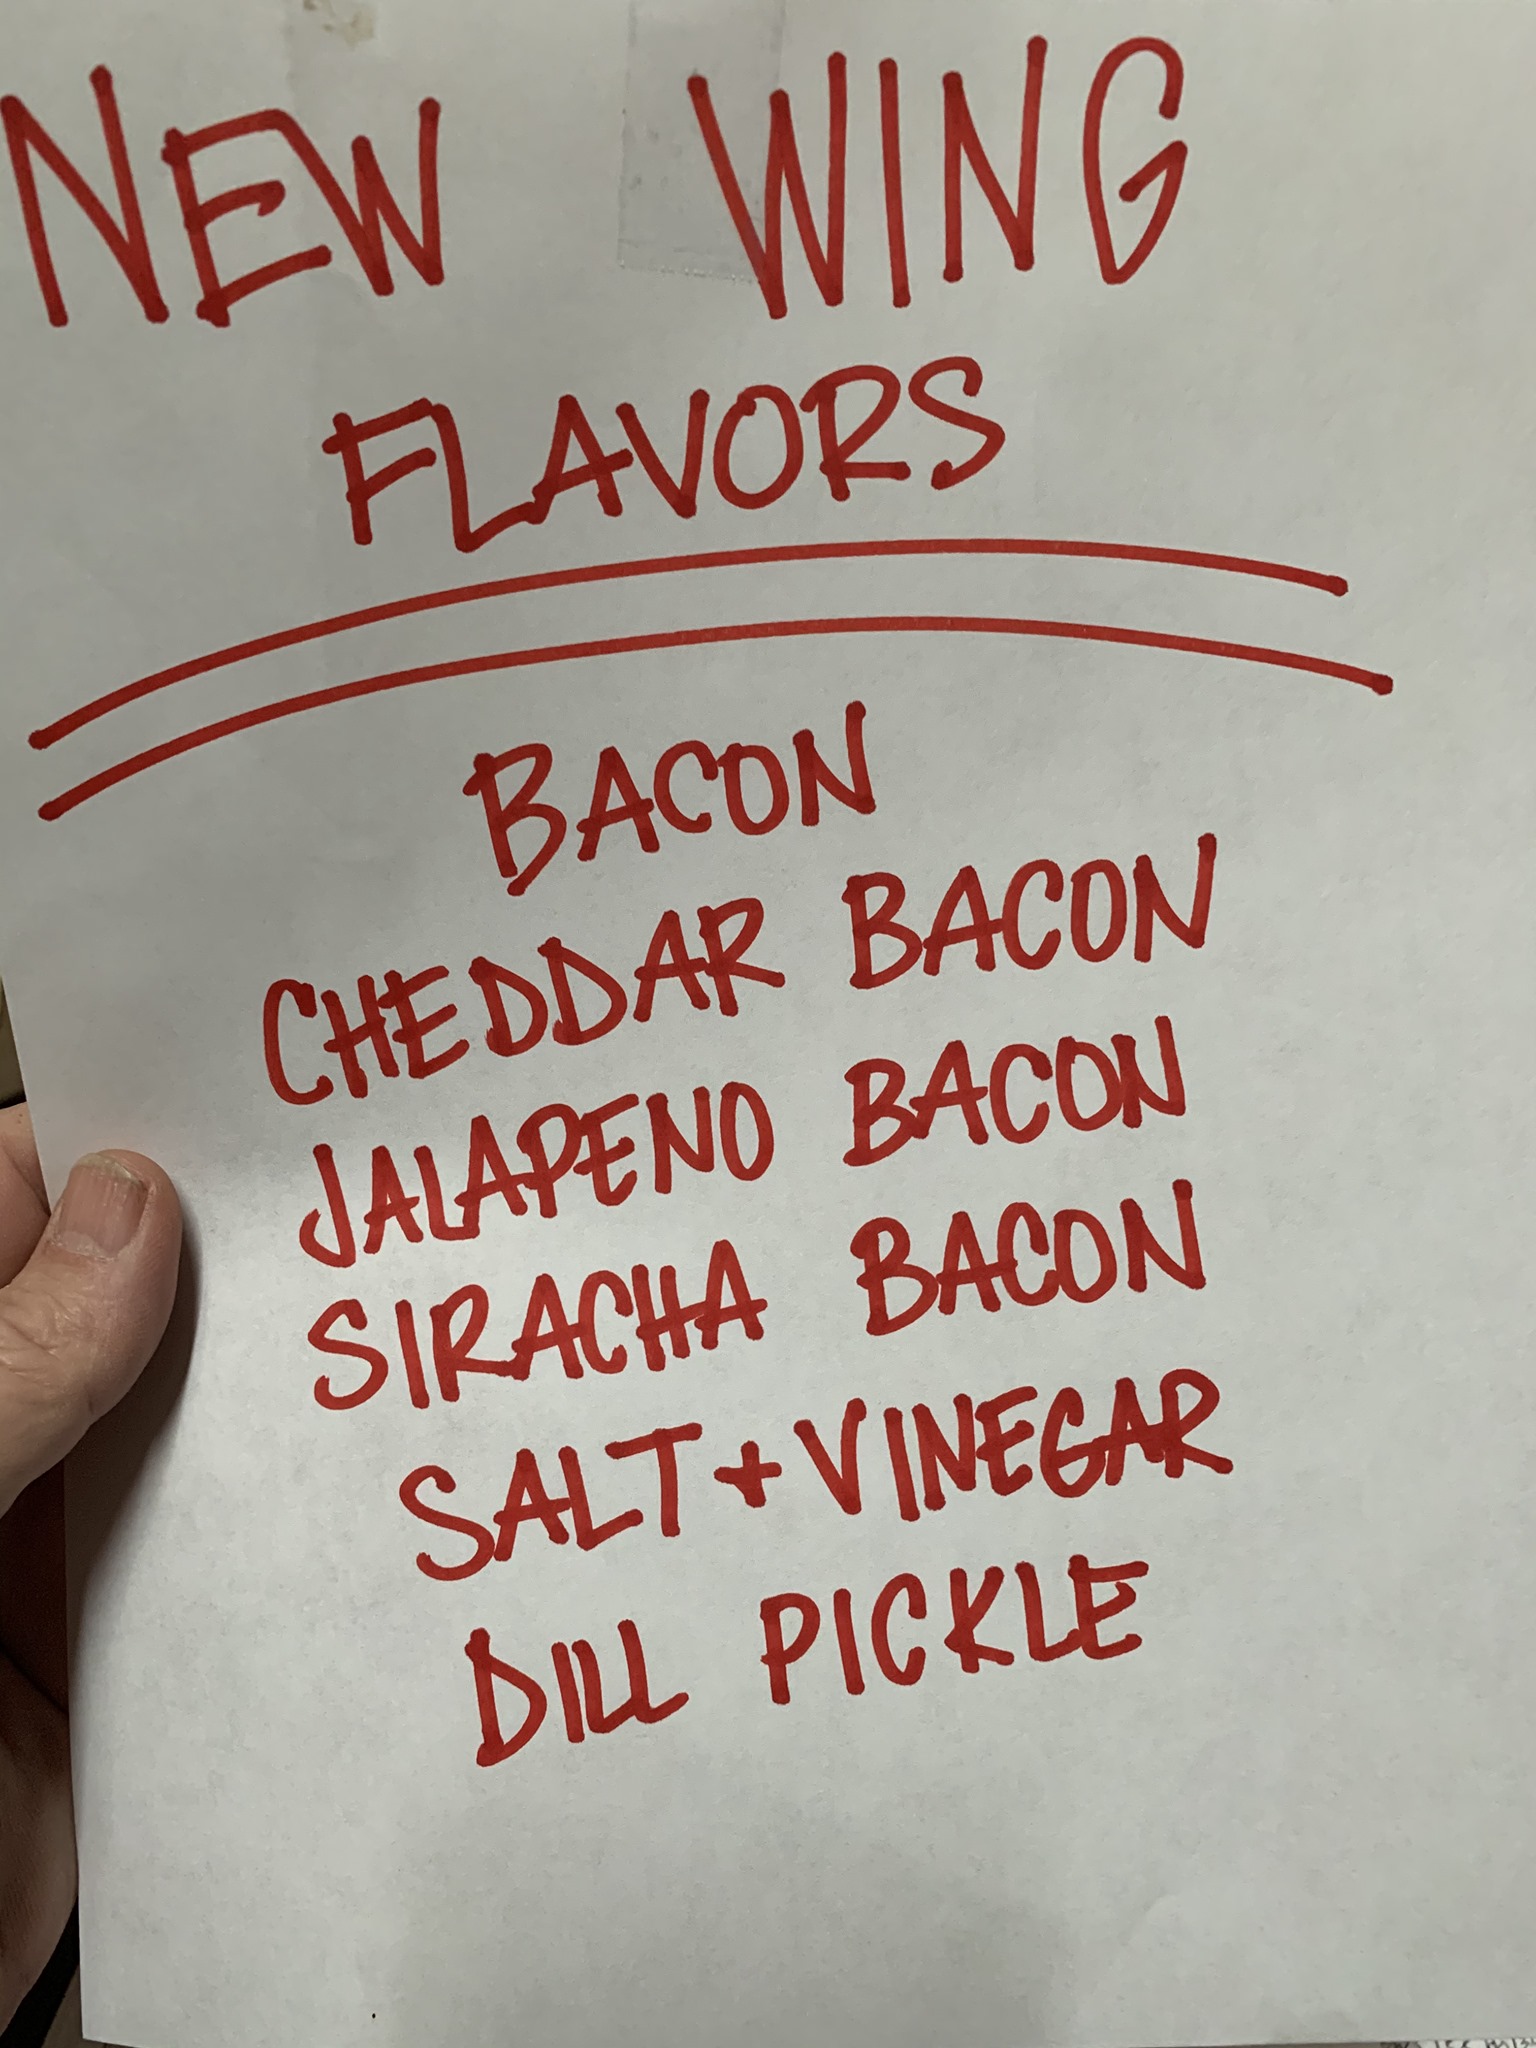 NEW WING
FLAVORS
BACON
CHEDDAR BACON
JALAPENO BACON
SIRACHA BACON
SALT + VINEGAR
DILL PICKLE